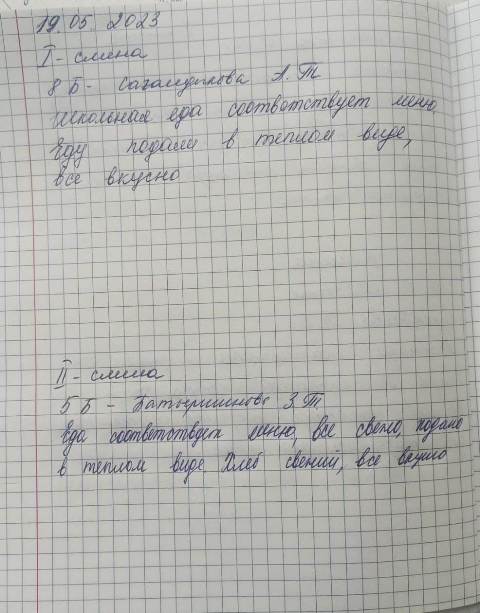 19.05.2023
I - смена
8 Б - Сагандыкова А.Т
Школьная еда соответствует меню
Еду подали в теплом виде,
все вкусно
II - смена
5 Б - З.Т.
Еда соответствует меню, все свежо, подано
в теплом виде Хлеб свежий, все вкусно